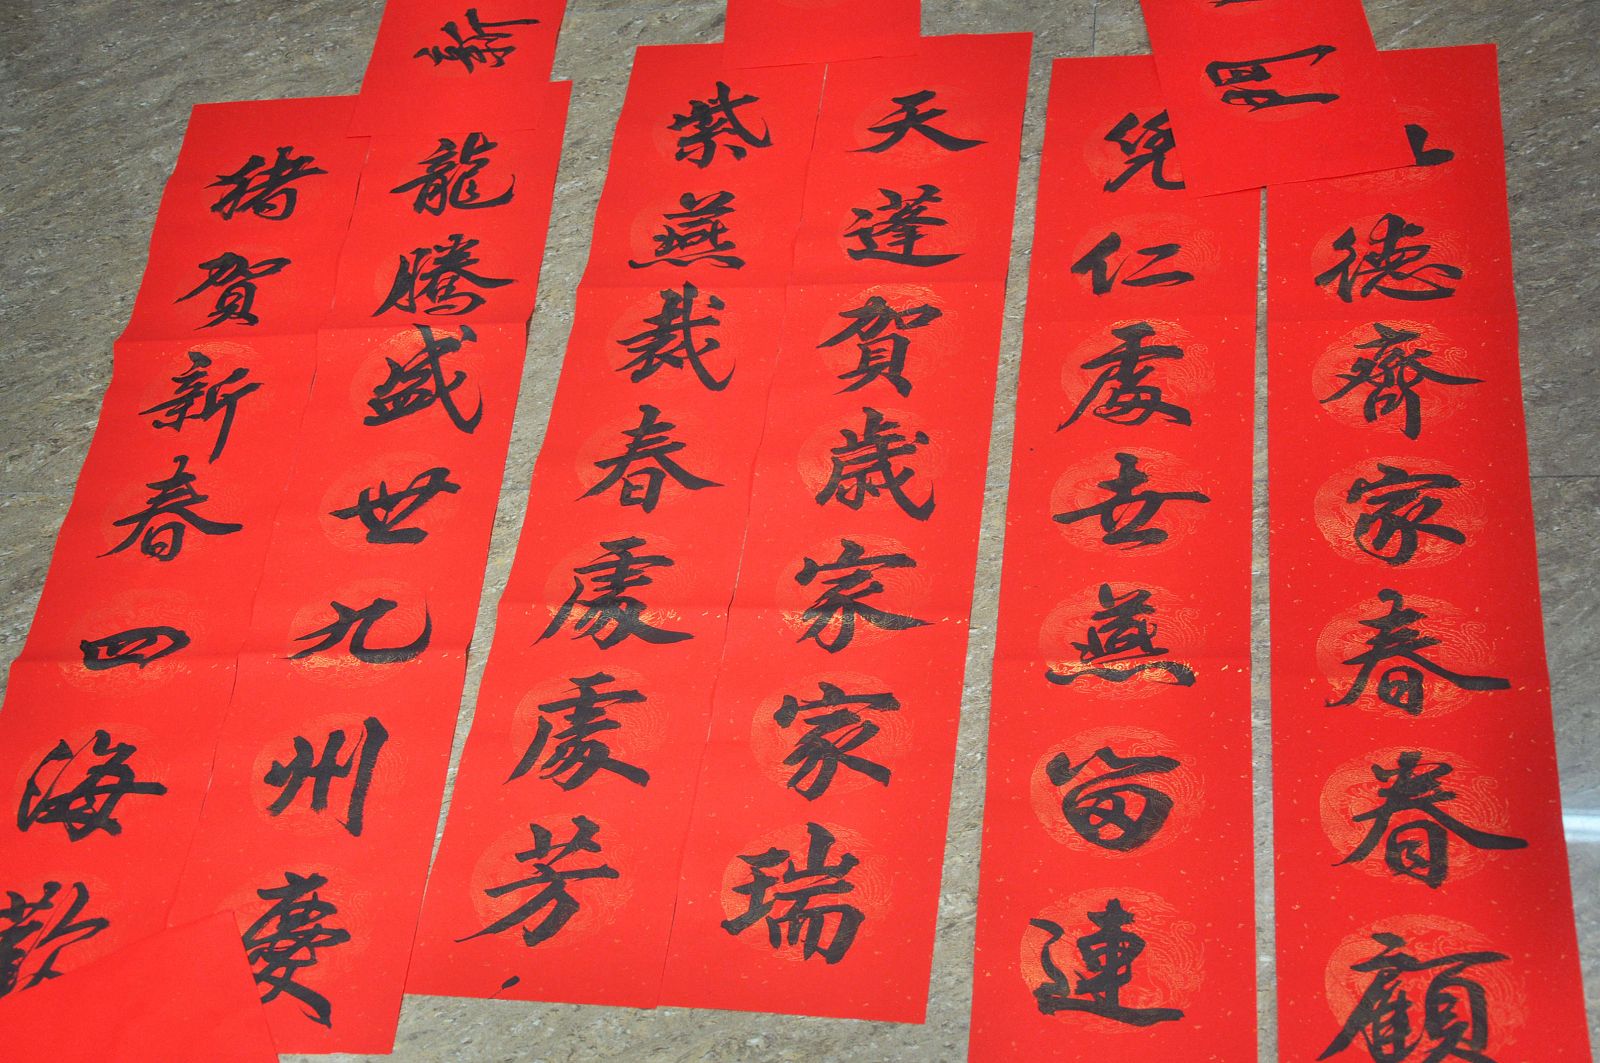 德齊家春眷顧
仁處世燕留連
天蓬賀歲家家瑞
紫燕裁春處處芳
新
龍騰盛世九州慶
猪賀新春四海歡